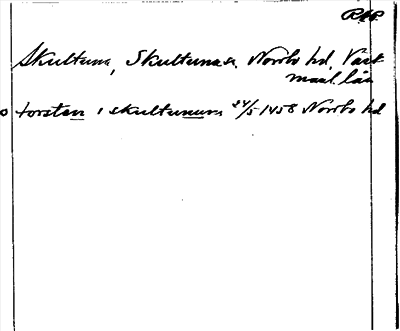 RAP.
Skultuna, Skultuna sn. Norrbo hd. Väst
manl. län
torsten i skultunum 24/5 1458 Norrbo hd